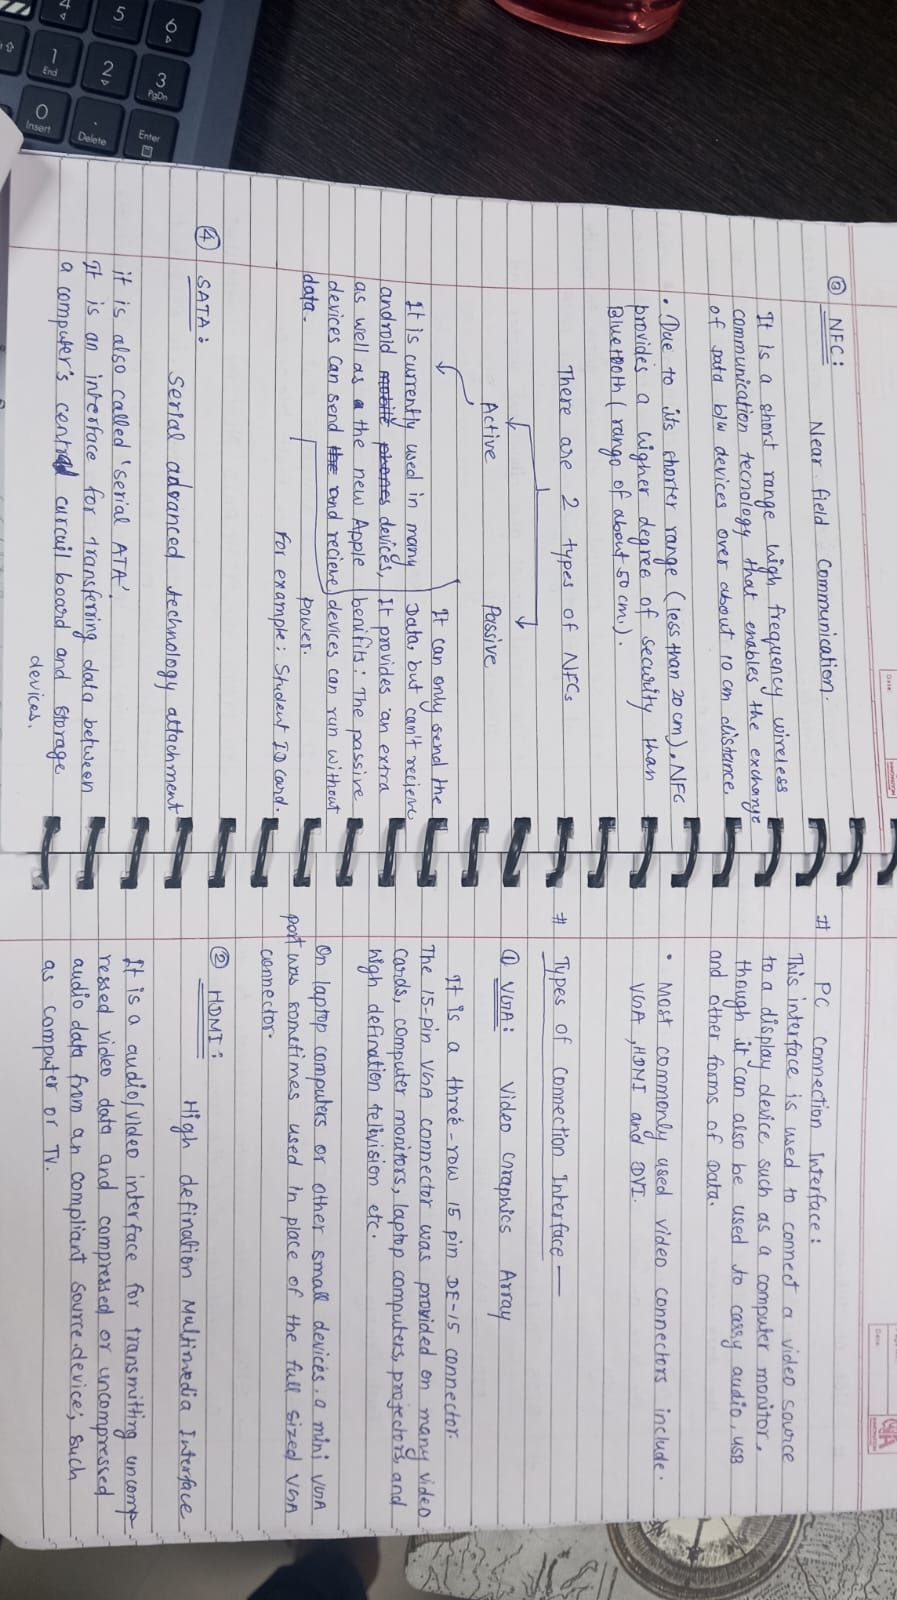 Date:
③ NFC:
Near field Communication.
It is a short range high frequency wireless
communication tecnology that enables the exchange
of Data b/w devices over about 10 cm distance.
• Due to its shorter range (less than 20 cm), NFC
provides a higher degree of security than
Bluetooth (range of about 50 cm.).
There are 2 types of NFCs
Active
It is currently used in many
android mobile phones devices,
as well as a the new Apple
devices can send the and recieve
data.
Passive
It can only send the
Data, but can't recieve
It provides an extra
benifits: The passive
devices can run without
power.
For example: Student ID card.
④ SATA:
Serial advanced technology attachment
it is also called 'serial ATA'.
It is an interface for transferring data between
a computer's central curcuil board and storage
devices.
Date:
# PC Connection Interface:
This interface is used to connect a video source
to a display device such as a computer monitor,
though it can also be used to carry audio, USB
and other forms of Data.
• Most commonly used video connectors include.
VGA, HDMI and DVI.
# Types of Connection Interface —
① VGA: Video Graphics Array
It is a three-row 15 pin DE-15 connector.
The 15-pin VGA connector was provided on many video
cards, computer monitors, laptop computers, projectors, and
high defination telivision etc.
On laptop computers or other small devices. a mini VGA
port was sometimes used in place of the full sized VGA
connector.
② HDMI:
High defination Multimedia Interface
It is a audio/video interface for transmitting uncomp-
ressed video data and compressed or uncompressed
audio data from an compliant source.device, such
as computer or Tv.
6
3
PgDn
Enter
5
2
Delete
4
1
End
0
Insert